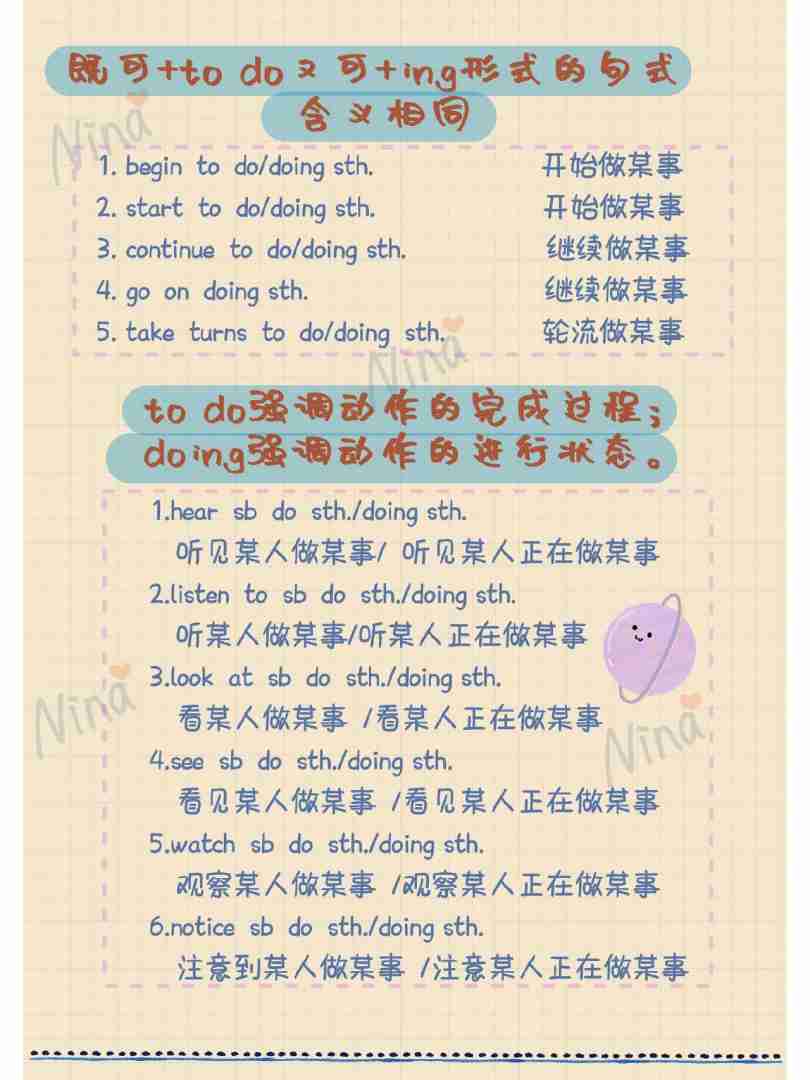 既可+to do又可+ing形式的句式
含义相同
1. begin to do/doing sth. 开始做某事
2. start to do/doing sth. 开始做某事
3. continue to do/doing sth. 继续做某事
4. go on doing sth. 继续做某事
5. take turns to do/doing sth. 轮流做某事
to do强调动作的完成过程；
doing强调动作的进行状态。
1.hear sb do sth./doing sth.
听见某人做某事/ 听见某人正在做某事
2.listen to sb do sth./doing sth.
听某人做某事/听某人正在做某事
3.look at sb do sth./doing sth.
看某人做某事 /看某人正在做某事
4.see sb do sth./doing sth.
看见某人做某事 /看见某人正在做某事
5.watch sb do sth./doing sth.
观察某人做某事 /观察某人正在做某事
6.notice sb do sth./doing sth.
注意到某人做某事 /注意某人正在做某事
Nina
Nina
Nina
Nina